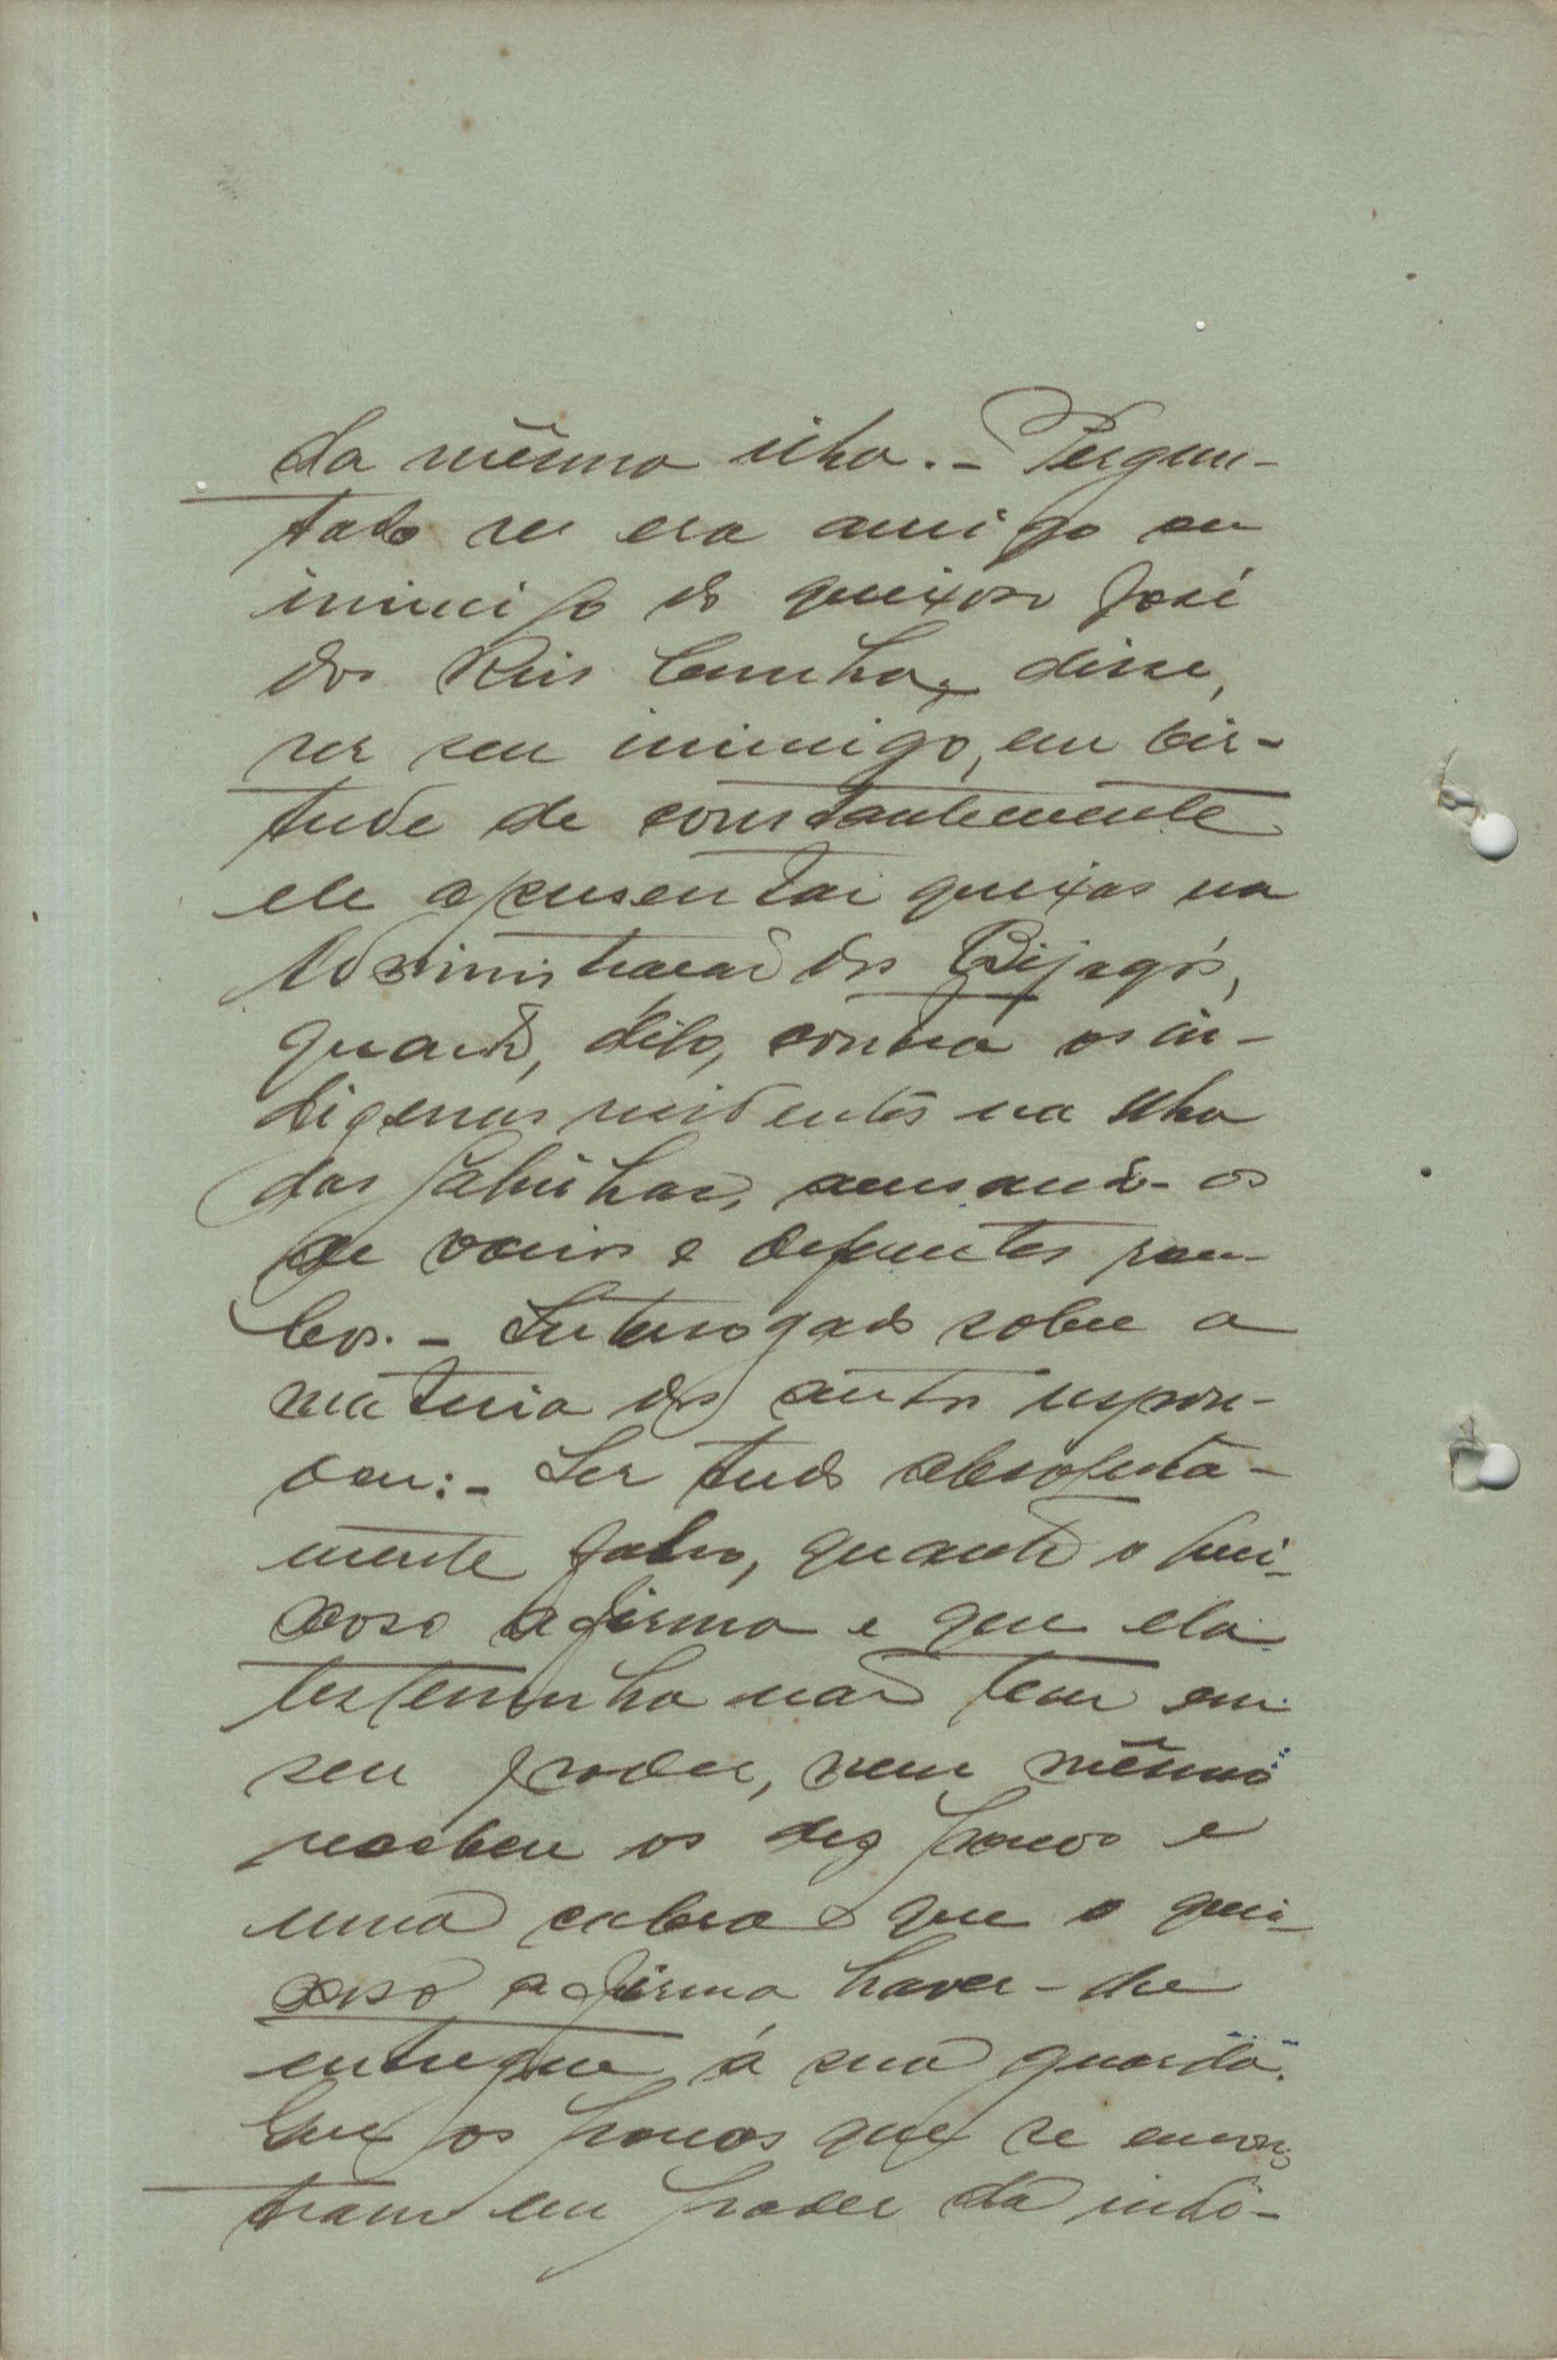 da mêsma ilha.- Pergun-
tado se era amigo ou
inimigo do queixoso José
dos Reis Cunha, disse,
ser seu inimigo, em vir-
tude de constantemente
ele apresentar queixas na
Administração dos Bijagós,
quando, dito, contra os in-
digenas residentes na Ilha
das Galinhas, acusando-os
de varios e diferentes rou-
bos.- Interrogado sobre a
materia dos autos respon-
deu:- Ser tudo absoluta-
mente falso, quanto o quei-
xoso afirma e que ela
testemunha não tem em
seu poder, nem mêsmo
recebeu os dez porcos e
uma cabra que o quei-
xoso afirma haver-lhe
entregue á sua guarda.
Que os porcos que se encon-
tram em poder da indi-